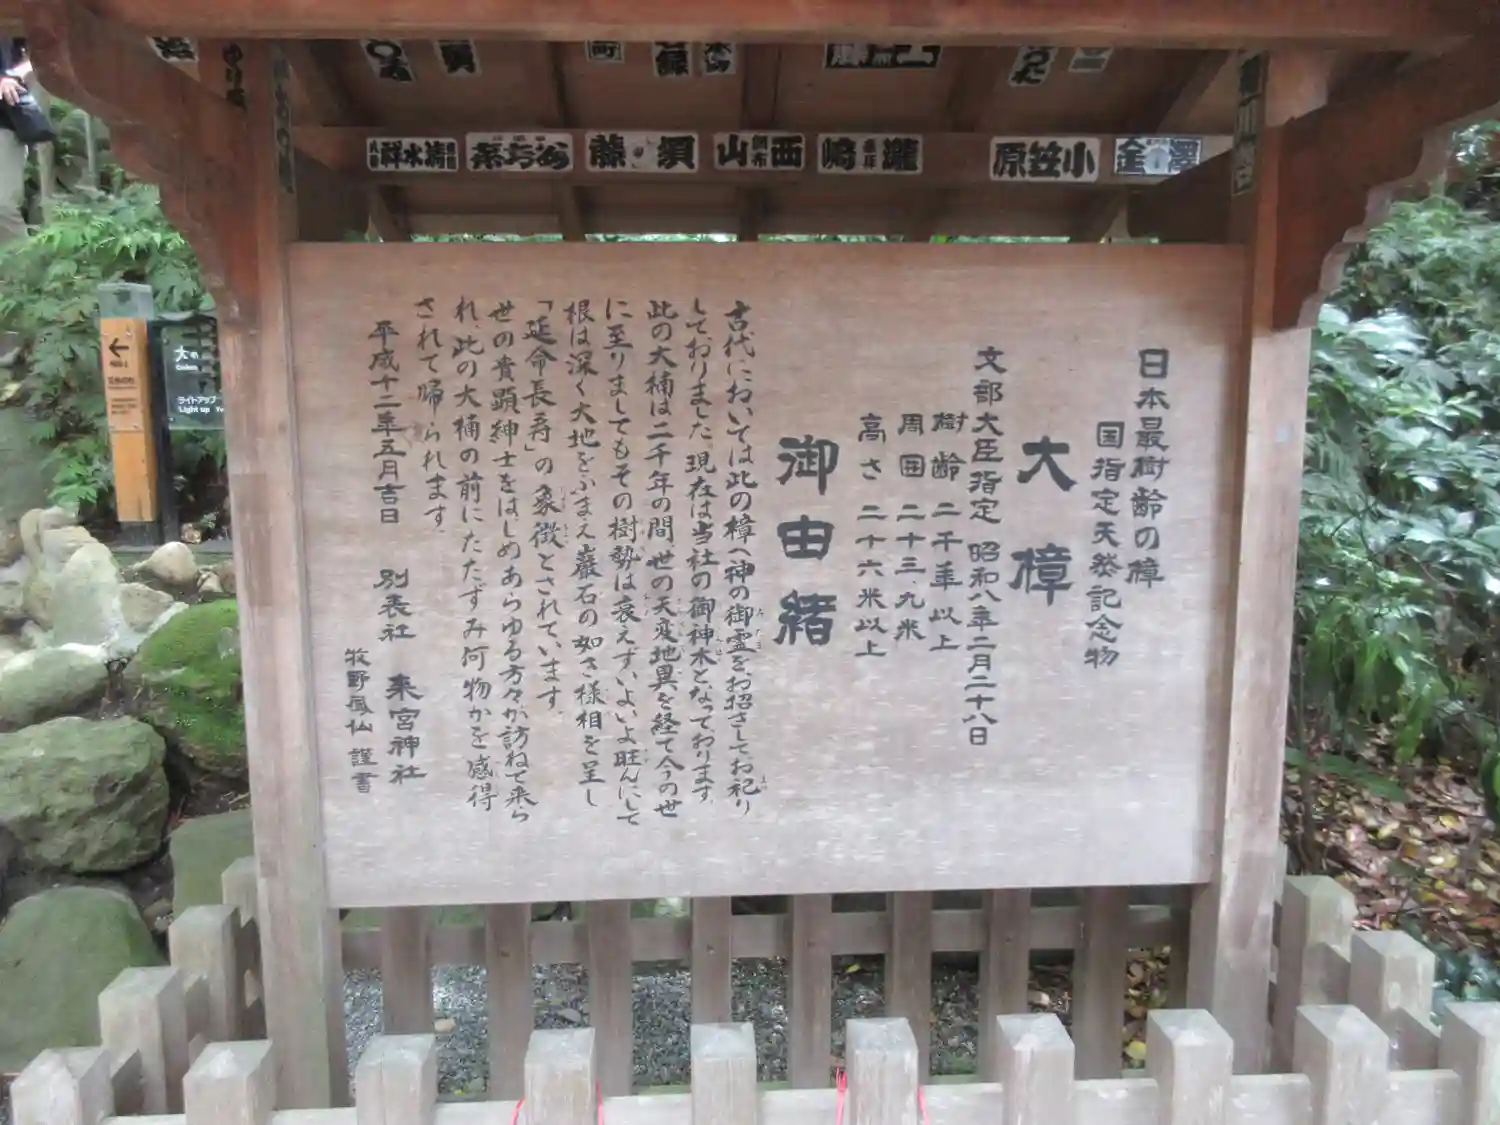 日本最樹齢の樟
国指定天然記念物
大樟
文部大臣指定 昭和八年二月二十八日
樹齢 二千年以上
周囲 二十三、九米
高さ 二十六米以上
御由緒
古代においては此の樟へ神の御霊をお招きしてお祀り
しておりました、現在は当社の御神木となっております
此の大楠は二千年の間、世の天変地異を経て今の世
に至りましてもその樹勢は衰えずいよいよ旺んにして
根は深く大地をふまえ巌石の如き様相を呈し
「延命長寿」の象徴とされています。
世の貴顕紳士をはじめあらゆる方々が訪ねて来ら
れ、此の大楠の前にたたずみ何物かを感得
されて帰られます。
平成十二年五月吉日 別表社 来宮神社
牧野鳳仙 謹書
小笠原
瀧崎
西山
須藤
清水祥
大の
ライトアップ
Light up